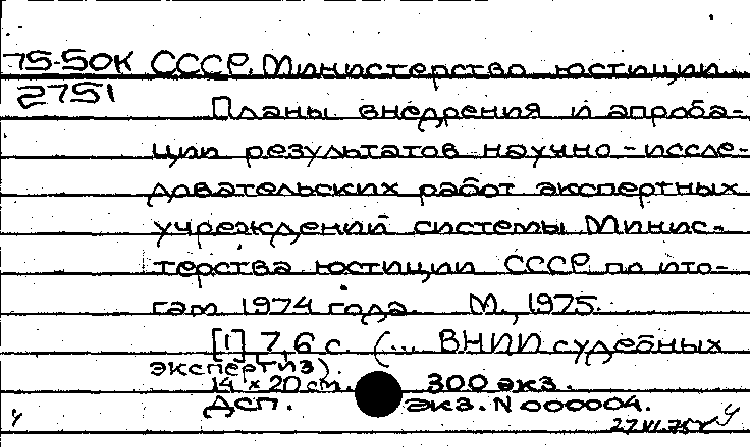 75-50К СССР. Министерство юстиции.
2751
Планы внедрения и апроба-
ции результатов научно-иссле-
довательских работ экспертных
учреждений системы Минис-
терства юстиции СССР по ито-
гам 1974 года. М., 1975.
[1] 7,6 с. (... ВНИИ судебных
экспертиз).
14 × 20 см. 300 экз.
ДСП. экз. N 000004.
27.VI.75г